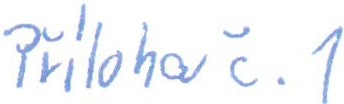 Příloha č. 1